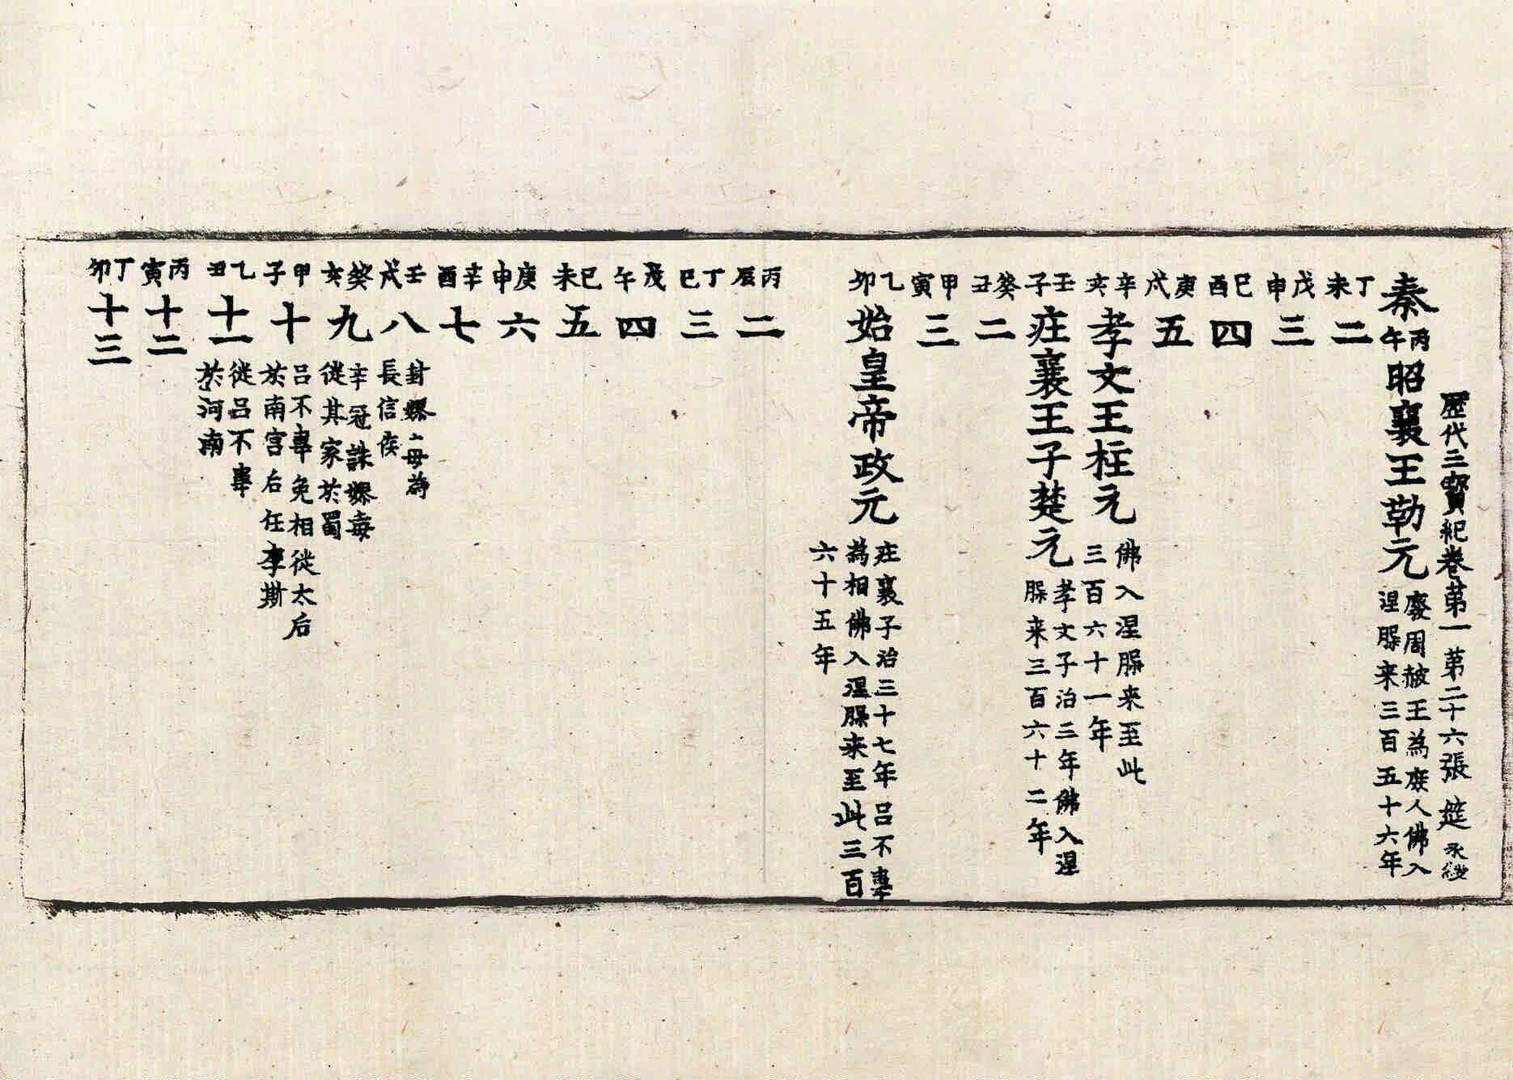 歷代三寶紀卷第一 第二十六張 筵
秦 丙午 昭襄王勒元 廢周赧王為庶人佛入涅槃來三百五十六年
丁未 二
戊申 三
己酉 四
庚戌 五
辛亥 孝文王柱元 佛入涅槃來至此三百六十一年
壬子 庄襄王子楚元 孝文子治三年佛入涅槃來三百六十二年
癸丑 二
甲寅 三
乙卯 始皇帝政元 庄襄子治三十七年呂不韋為相佛入涅槃來至此三百六十五年
丙辰 二
丁巳 三
戊午 四
己未 五
庚申 六
辛酉 七
壬戌 八 封嫪毐為長信侯
癸亥 九 辛冠誅嫪毐徙其家於蜀
甲子 十 呂不韋免相徙太后於南宮后任李斯
乙丑 十一 徙呂不韋於河南
丙寅 十二
丁卯 十三